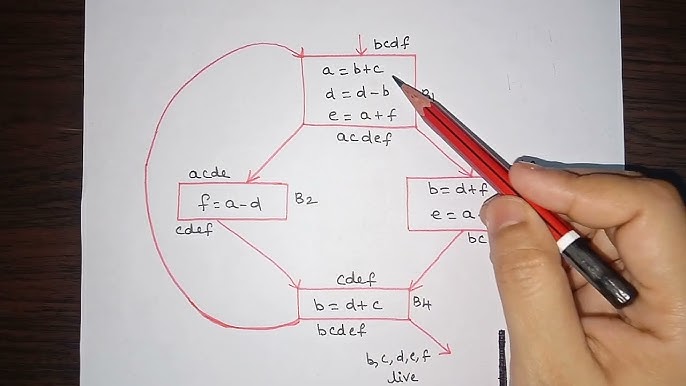 bcdf
a = b+c
d = d-b
e = a+f
B1
acdef
acde
f = a-d
B2
cdef
b = d+f
e = a
bc
cdef
b = d+c
B4
bcdef
b,c,d,e,f
live